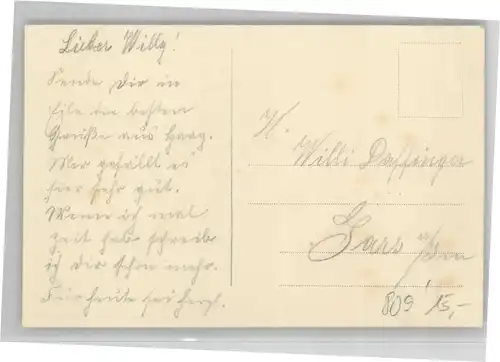 Lieber Willy!
Sende Dir in
Eile die besten
Grüße aus Haag.
Mir gefällt es
hier sehr gut.
Wenn ich mal
zeit hab schreib
ich dir schon mehr.
Für heute sei herzl.
H.
Willi Daffinger
Gars a/Inn
809 15,-